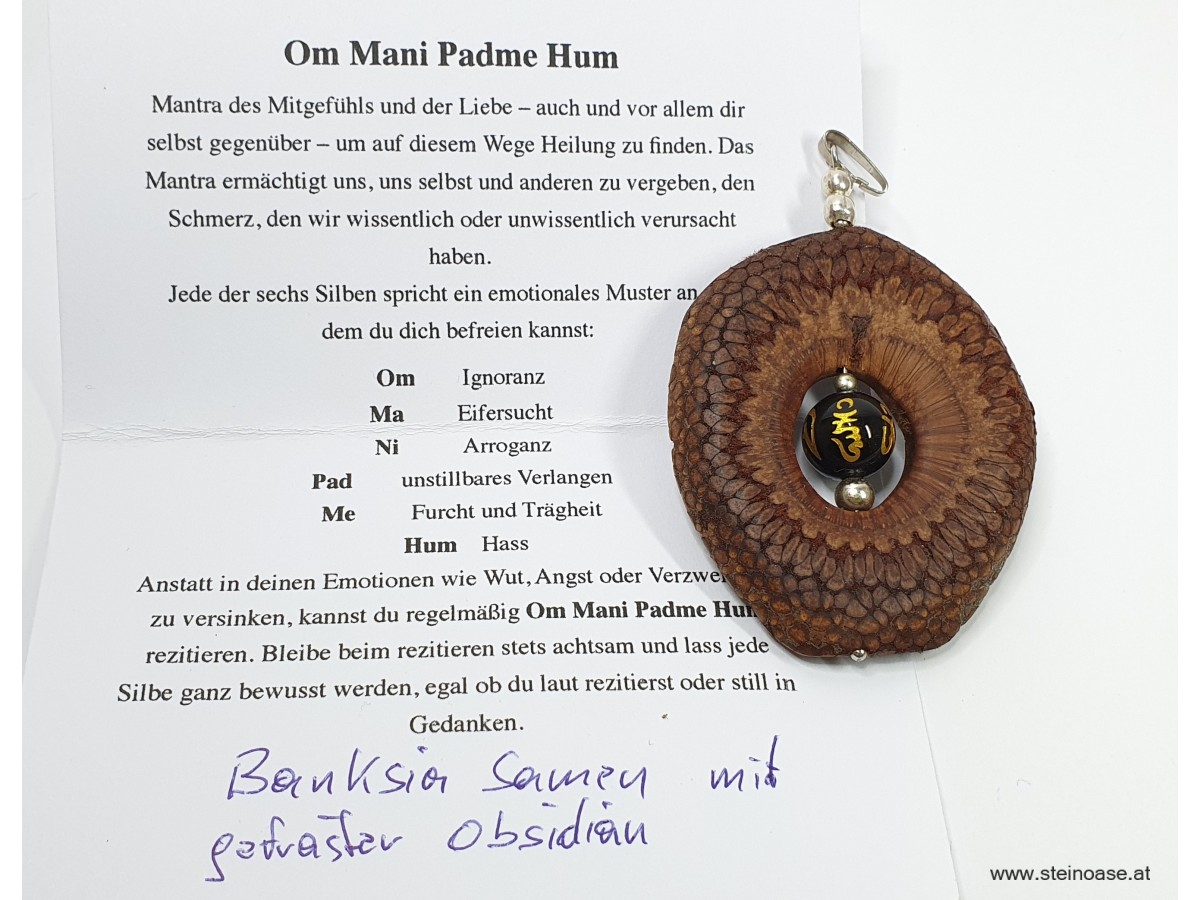 Om Mani Padme Hum
Mantra des Mitgefühls und der Liebe – auch und vor allem dir
selbst gegenüber – um auf diesem Wege Heilung zu finden. Das
Mantra ermächtigt uns, uns selbst und anderen zu vergeben, den
Schmerz, den wir wissentlich oder unwissentlich verursacht
haben.
Jede der sechs Silben spricht ein emotionales Muster an
dem du dich befreien kannst:
Om Ignoranz
Ma Eifersucht
Ni Arroganz
Pad unstillbares Verlangen
Me Furcht und Trägheit
Hum Hass
Anstatt in deinen Emotionen wie Wut, Angst oder Verzwei
zu versinken, kannst du regelmäßig Om Mani Padme Hum
rezitieren. Bleibe beim rezitieren stets achtsam und lass jede
Silbe ganz bewusst werden, egal ob du laut rezitierst oder still in
Gedanken.
Banksia Samen mit
gefräster Obsidian
www.steinoase.at